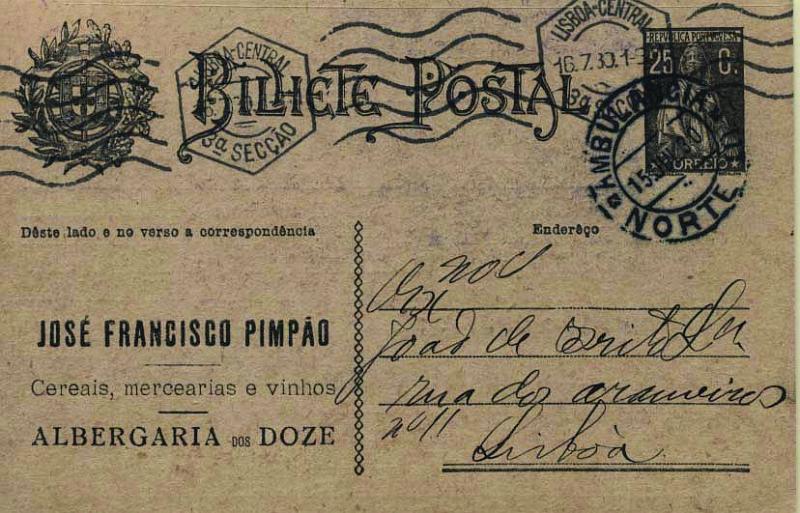 LISBOA-CENTRAL
3ª SECÇÃO
BILHETE POSTAL
LISBOA-CENTRAL
16.7.30.1-
3ª SECÇ
REPUBLICA PORTUGUESA
25 C.
CORREIO
AMBULANCIA
15
NORTE
Dêste lado e no verso a correspondência
Endereço
JOSÉ FRANCISCO PIMPÃO
Cereais, mercearias e vinhos
ALBERGARIA DOS DOZE
João de Brito
rua dos arameiros
nº 11
Lisbôa